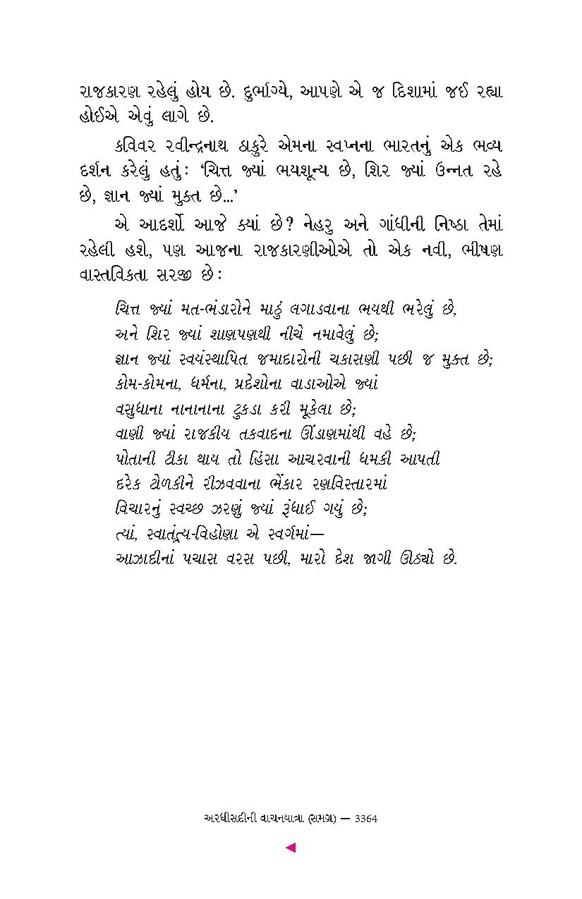 રાજકારણ રહેલું હોય છે. દુર્ભાગ્યે, આપણે એ જ દિશામાં જઈ રહ્યા
હોઈએ એવું લાગે છે.
કવિવર રવીન્દ્રનાથ ઠાકુરે એમના સ્વપ્નના ભારતનું એક ભવ્ય
દર્શન કરેલું હતું: ‘ચિત્ત જ્યાં ભયશૂન્ય છે, શિર જ્યાં ઉન્નત રહે
છે, જ્ઞાન જ્યાં મુક્ત છે...’
એ આદર્શો આજે ક્યાં છે? નેહરુ અને ગાંધીની નિષ્ઠા તેમાં
રહેલી હશે, પણ આજના રાજકારણીઓએ તો એક નવી, ભીષણ
વાસ્તવિકતા સરજી છે:
ચિત્ત જ્યાં મત-ભંડારોને માઠું લગાડવાના ભયથી ભરેલું છે,
અને શિર જ્યાં શાણપણથી નીચે નમાવેલું છે;
જ્ઞાન જ્યાં સ્વયંસ્થાપિત જમાદારોની ચકાસણી પછી જ મુક્ત છે;
કોમ-કોમના, ધર્મના, પ્રદેશોના વાડાઓએ જ્યાં
વસુધાના નાનાનાના ટુકડા કરી મૂકેલા છે;
વાણી જ્યાં રાજકીય તકવાદના ઊંડાણમાંથી વહે છે;
પોતાની ટીકા થાય તો હિંસા આચરવાની ધમકી આપતી
દરેક ટોળકીને રીઝવવાના ભેંકાર રણવિસ્તારમાં
વિચારનું સ્વચ્છ ઝરણું જ્યાં રૂંધાઈ ગયું છે;
ત્યાં, સ્વાતંત્ર્ય-વિહોણા એ સ્વર્ગમાં—
આઝાદીનાં પચાસ વરસ પછી, મારો દેશ જાગી ઊઠ્યો છે.
અરધીસદીની વાચનયાત્રા (સમગ્ર) — 3364